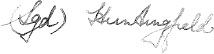 (Sgd.) Huntingfield